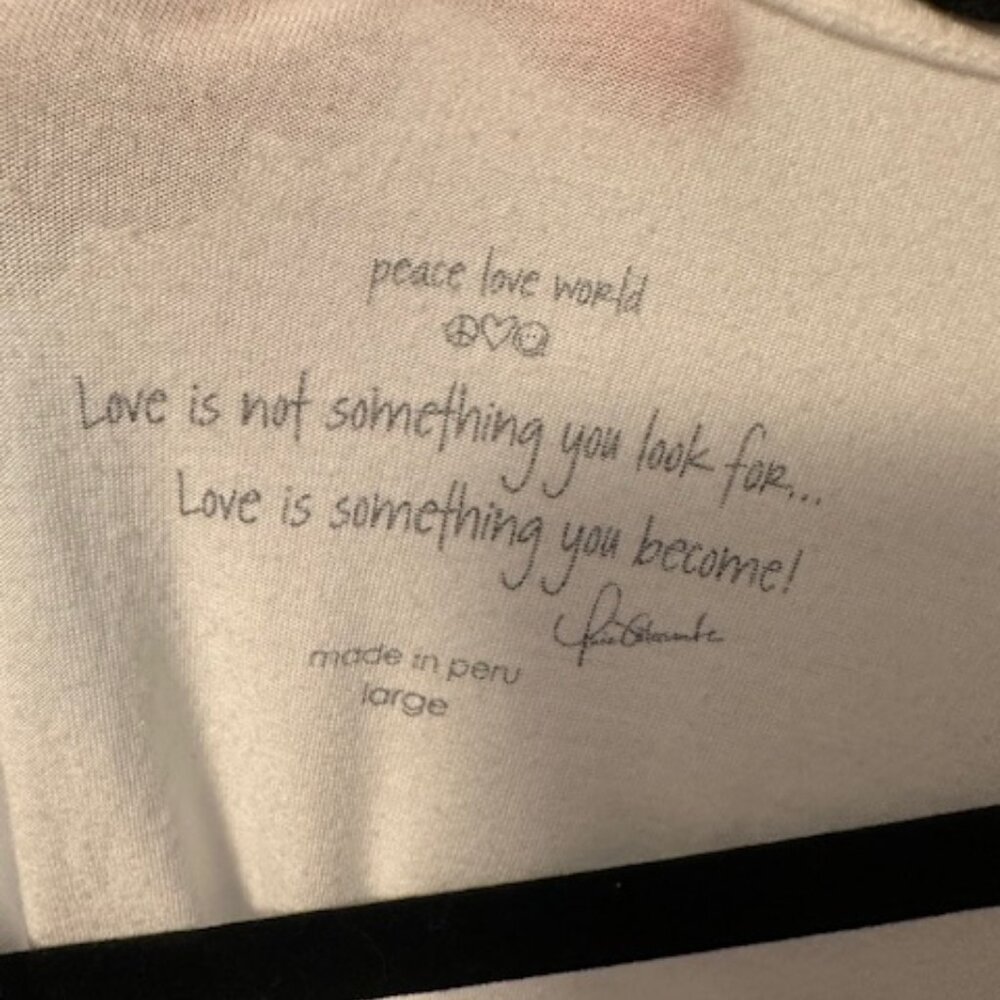 peace love world
Love is not something you look for...
Love is something you become!
made in peru
large